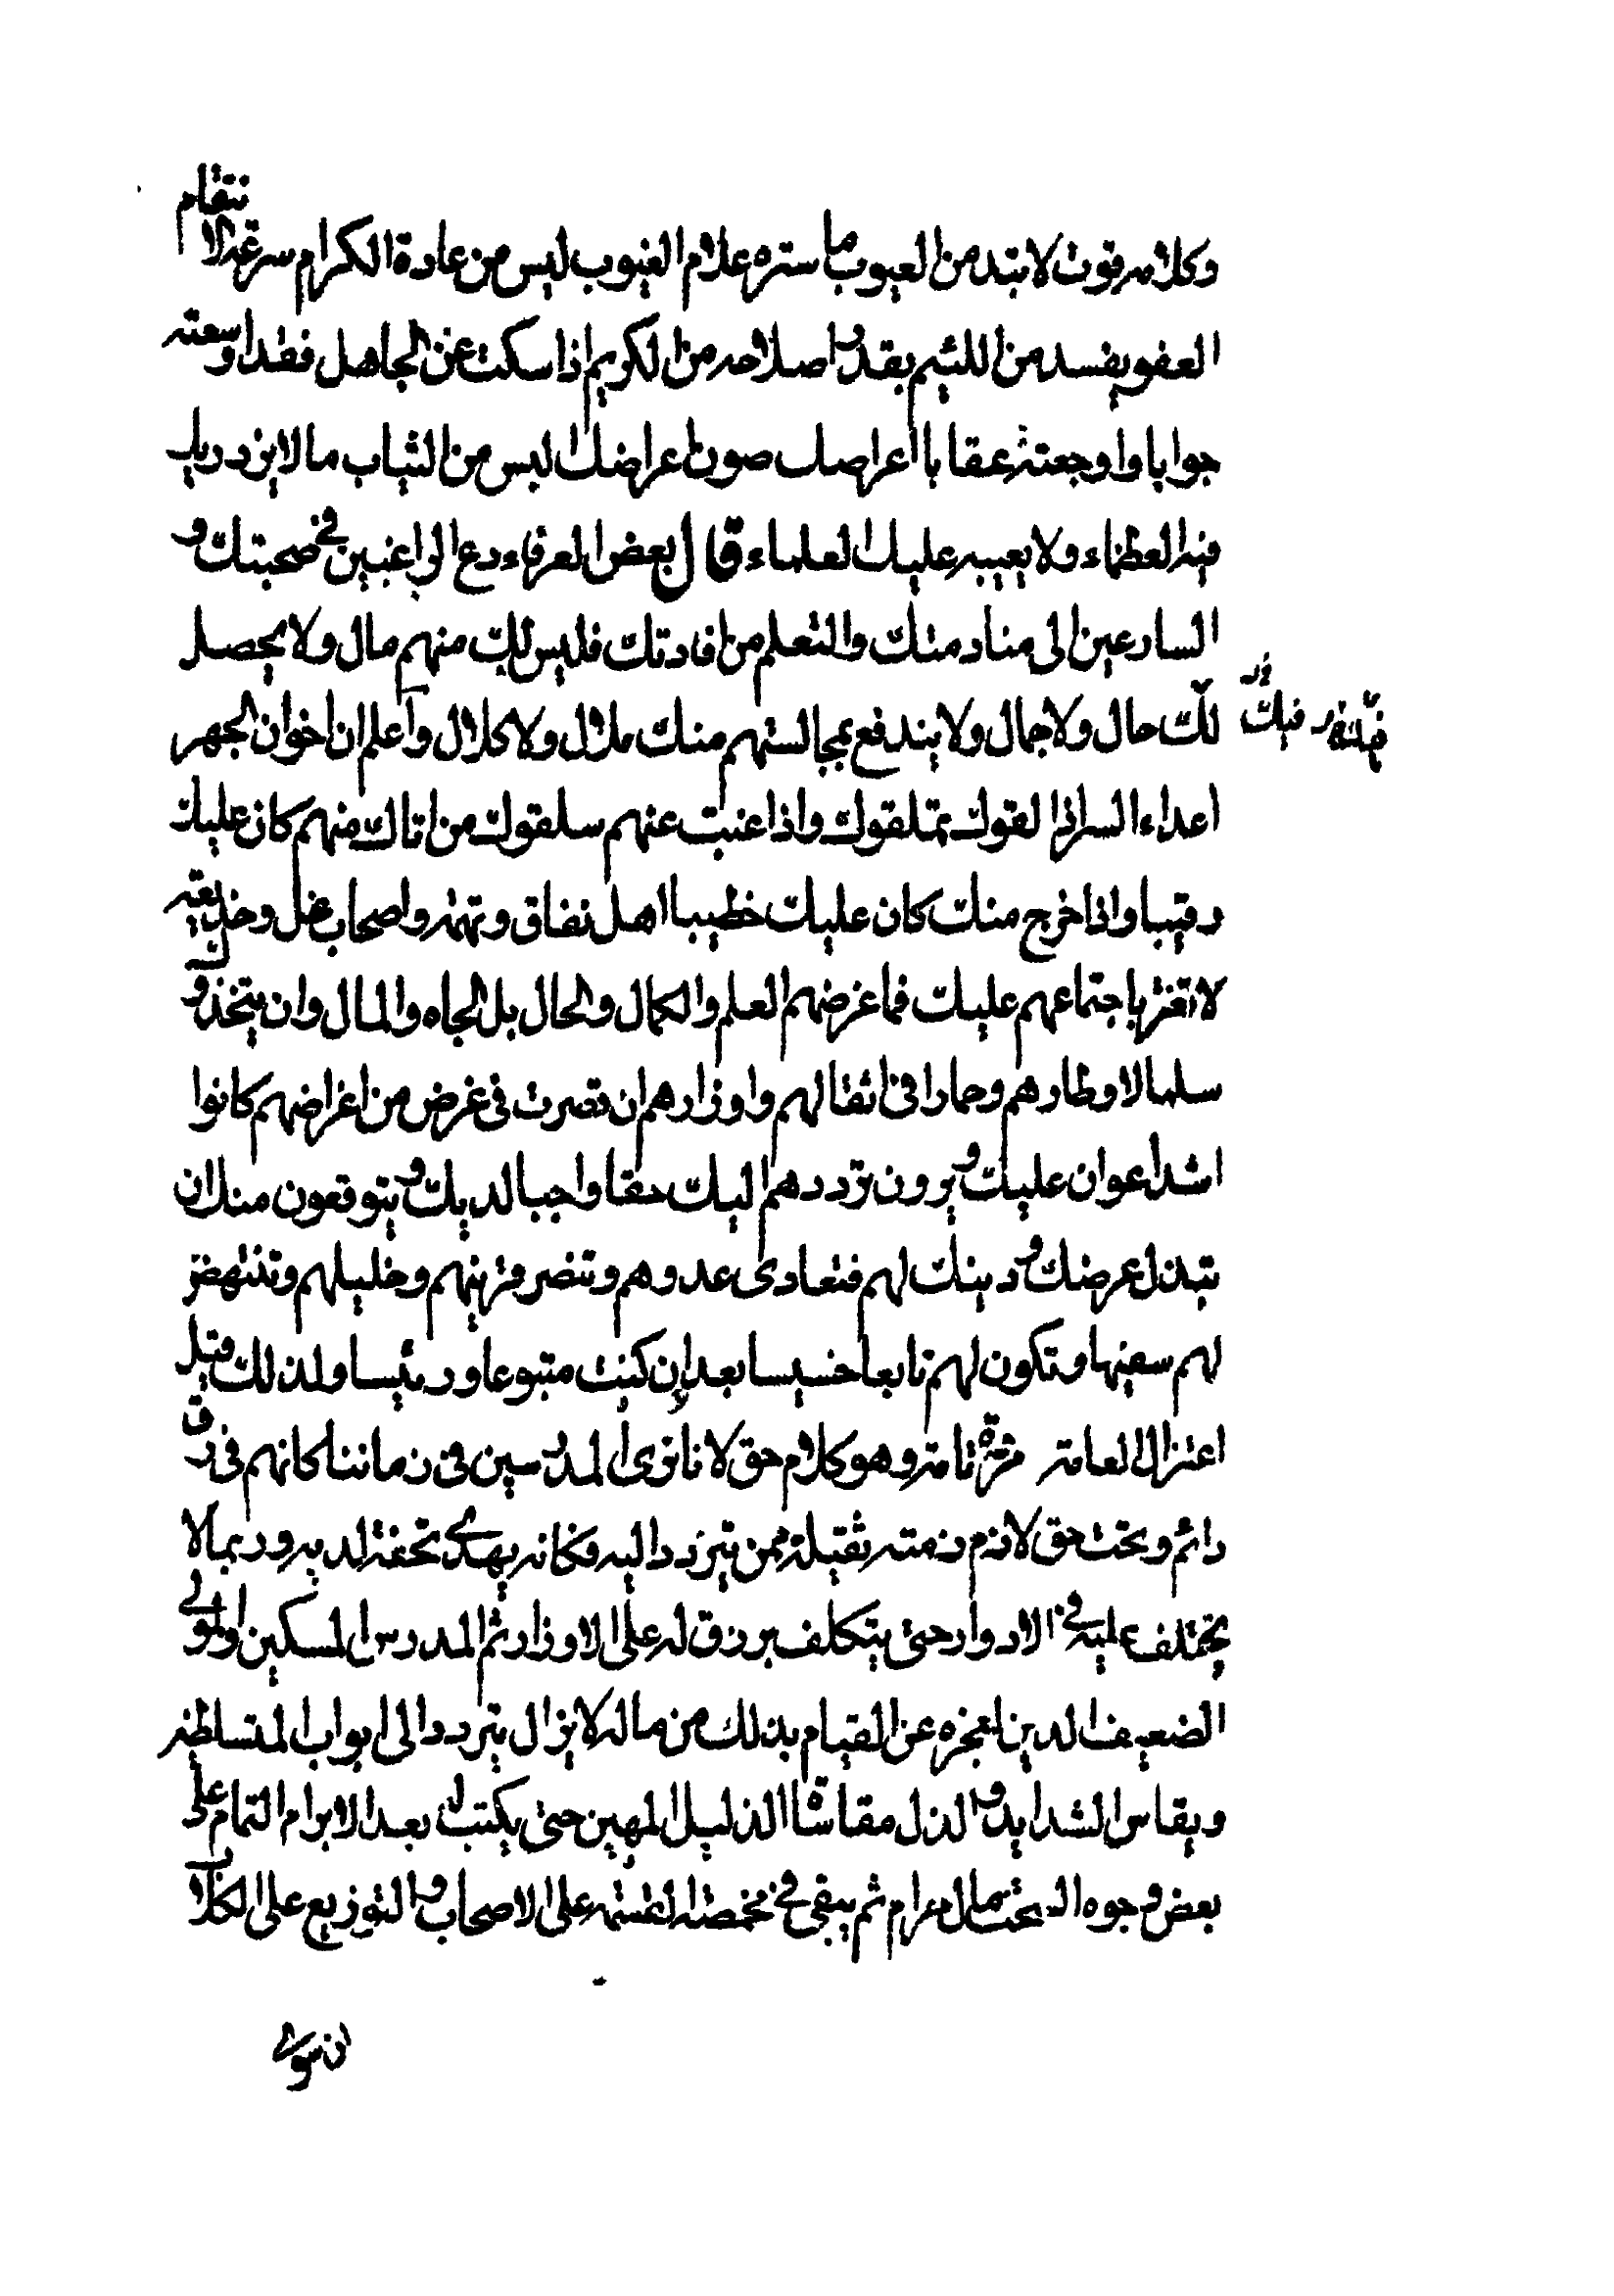 وكلامه قوت لا تبد من العيوب ما ستره علام الغيوب ليس من عادة الكرام سرعة الانتقام
العفو يفسد من اللئيم بقدر اصلاحه من الكريم اذا سكت عن الجاهل فقد اوسعته
جوابا واوجعته عقابا صون اعراضك ليس من الثياب ما لا يزدريك
فيه العظماء ولا يعيبه عليك العلماء قال بعض العرفاء دع الراغبين في صحبتك و
السارعين الى منادمتك والتعلم من افادتك فليس لك منهم مال ولا يحصل
لك حال ولا جمال ولا يندفع بمجالستهم منك ملال ولا كلال واعلم ان اخوان الجهر
اعداء السر اذا لقوك تملقوك واذا غبت عنهم سلقوك من اتاك منهم كان عليك
رقيبا واذا خرج منك كان عليك خطيبا اهل نفاق ونميمة واصحاب غل وخديعة
لا تغتر باجتماعهم عليك فما غرضهم العلم والكمال والحال بل الجاه والمال وان يتخذوك
سلما لاوطارهم وحمارا في اثقالهم واوزارهم ان قصرت في غرض من اغراضهم كانوا
اشد اعوان عليك ويرون ترددهم اليك حقا واجبا لديك ويتوقعون منك ان
تبذل عرضك ودينك لهم فتعادى عدوهم وتنصر قرينهم وخليلهم وتنتهض
لهم سفيها وتكون لهم تابعا خسيسا بعد ان كنت متبوعا ورئيسا ولذلك قيل
اعتزال العامة مروة تامة وهو كلام حق لانا نرى المدرسين في زماننا كانهم في رق
دائم وتحت حق لازم ذمته ثقيلة ممن يتردد اليه فكانه يهدى تحفة لديه وربما لا
يختلف عليه في الادوار حتى يتكلف برزق له على الاوزار ثم المدرس المسكين والمولى
الضعيف الدين لعجزه عن القيام بذلك من ماله لا يزال يتردد الى ابواب المتسلطين
ويقاس الشدايد والذل مقاساة الذليل المهين حتى يكتب له بعد الابرام التمام على
بعض وجوه السحت مال حرام ثم يبقى في مخمصة القسمة على الاصحاب والتوزيع على الكلاب